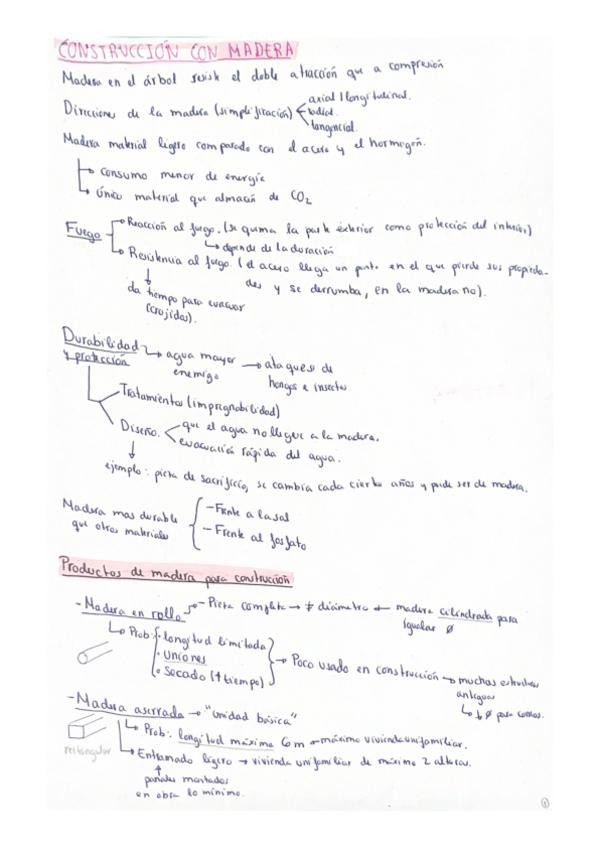 CONSTRUCCIÓN CON MADERA
Madera en el árbol resiste el doble a tracción que a compresión
Direcciones de la madera (simplificación)
axial / longitudinal.
radial.
tangencial.
Madera material ligero comparado con el acero y el hormigón.
→ consumo menor de energía
→ único material que almacén de CO2
Fuego
→ Reacción al fuego. (se quema la parte exterior como protección del interior)
→ depende de la duración
→ Resistencia al fuego. (el acero llega un punto en el que pierde sus propieda-
des y se derrumba, en la madera no).
da tiempo para evacuar
(crujidos).
Durabilidad → agua mayor → ataques de
y protección
enemigo
hongos e insectos
Tratamientos (impregnabilidad)
Diseño.
que el agua no llegue a la madera.
evacuación rápida del agua.
ejemplo: pieza de sacrificio, se cambia cada cierto años y puede ser de madera.
Madera mas durable
que otros materiales
- Frente a la sal
- Frente al fosfato
Productos de madera para construcción
- Madera en rollo → - Pieza completa → ≠ diámetro ← madera cilindrada para
igualar ø
→ Prob:
· longitud limitada
· uniones
· Secado (+ tiempo)
→ Poco usado en construcción → muchas estructuras
antiguas
→ ↓ ø para
- Madera aserrada → "unidad básica"
→ Prob: longitud máxima 6m → máximo vivienda unifamiliar.
rectangular
→ Entramado ligero → vivienda unifamiliar de máximo 2 alturas.
paneles montados
en obra lo mínimo.
1